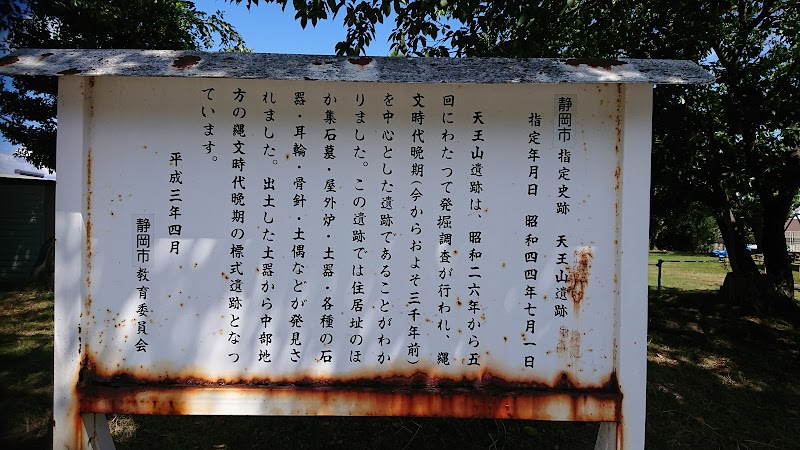 静岡市指定史跡　天王山遺跡
指定年月日　昭和四四年七月一日
天王山遺跡は、昭和二六年から五
回にわたつて発掘調査が行われ、縄
文時代晩期（今からおよそ三千年前）
を中心とした遺跡であることがわか
りました。この遺跡では住居址のほ
か集石墓・屋外炉・土器・各種の石
器・耳輪・骨針・土偶などが発見さ
れました。出土した土器から中部地
方の縄文時代晩期の標式遺跡となつ
ています。
平成三年四月
静岡市教育委員会